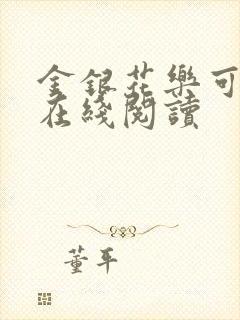 金銀花樂可
在綫閱讀
董平